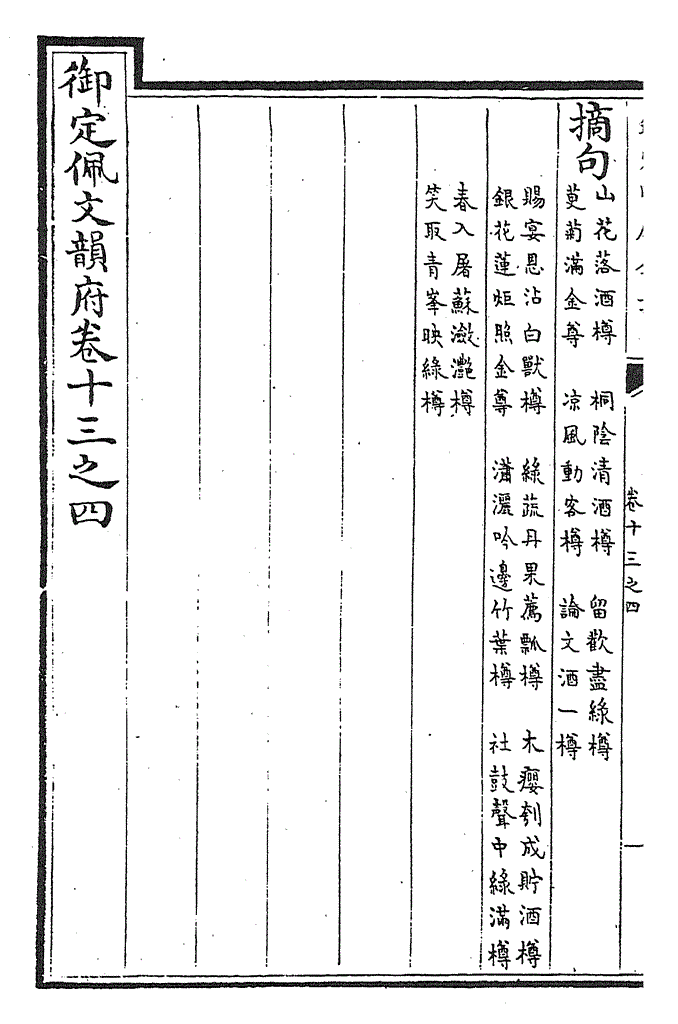 卷十三之四
一
摘句
山花落酒樽 桐陰清酒樽 留歡盡綠樽
萸菊滿金尊 凉風動客樽 論文酒一樽
賜宴恩沾白獸樽 綠蔬丹果薦瓢樽 木癭刳成貯酒樽
銀花蓮炬照金尊 瀟灑吟邊竹葉樽 社鼓聲中綠滿樽
春入屠蘇瀲灔樽
笑取青峯映綠樽
御定佩文韻府卷十三之四